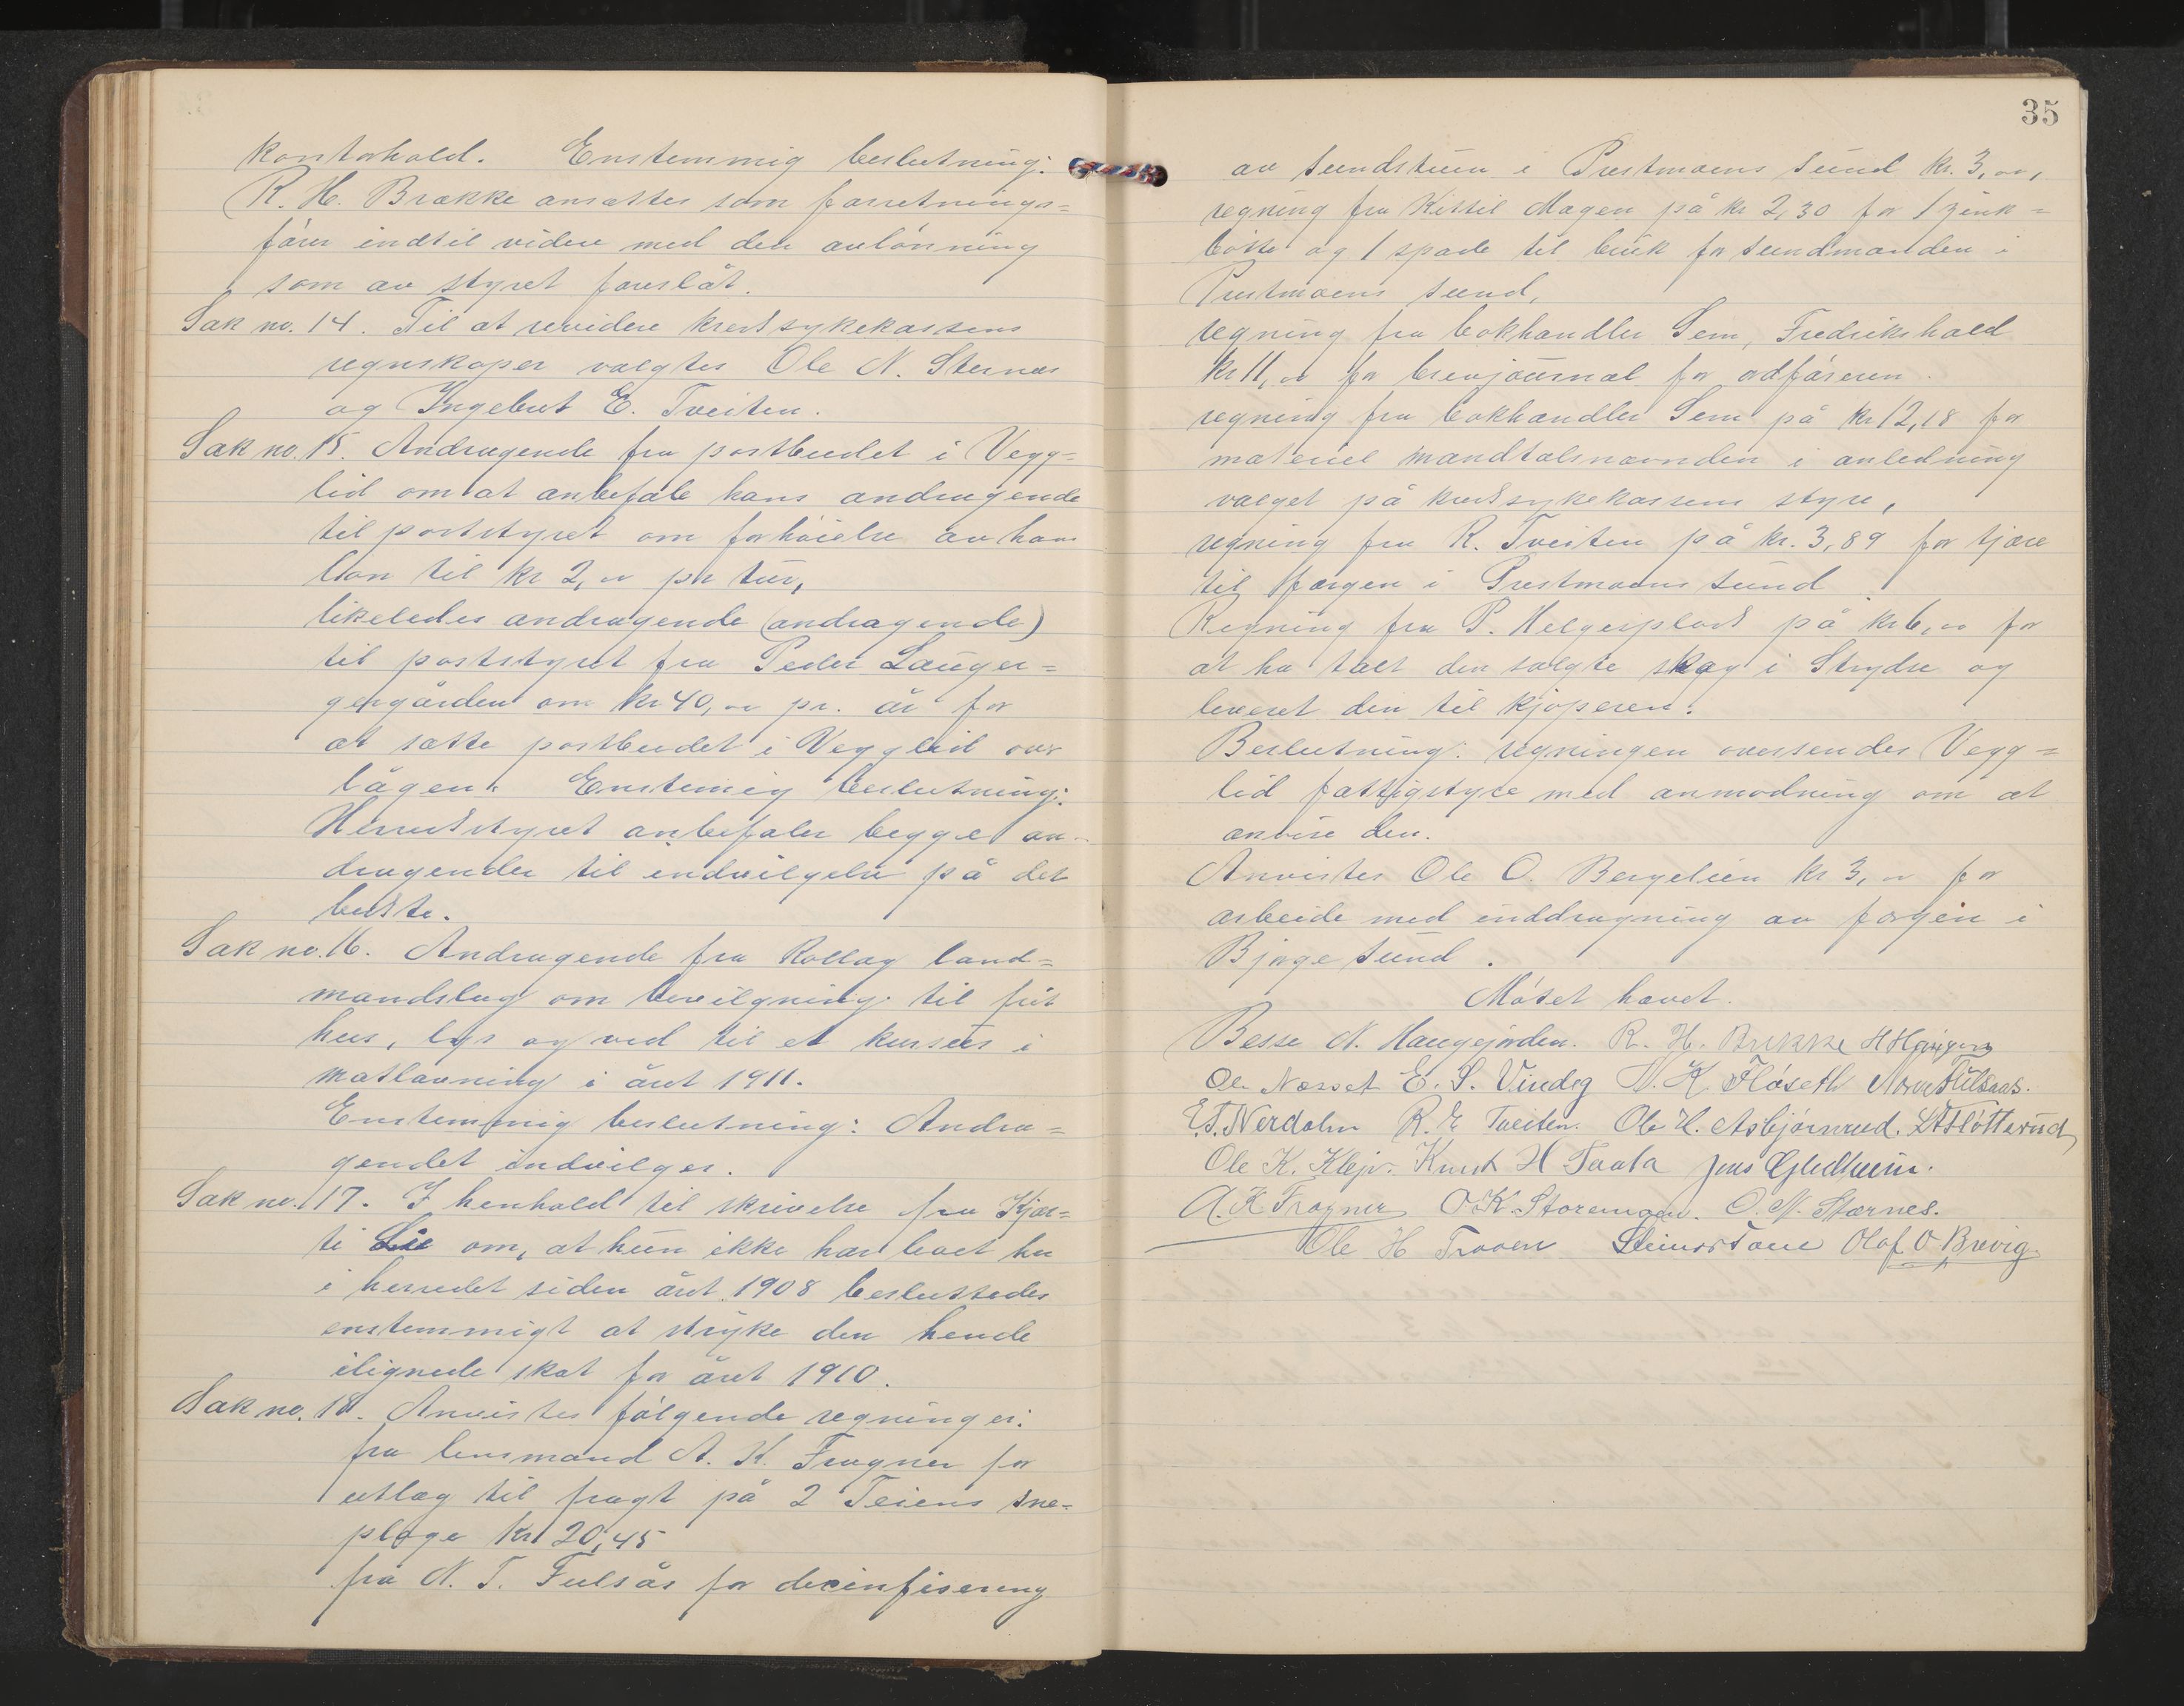 kontorhold. Enstemmig beslutning:
R. H. Brække ansættes som forretnings=
fører indtil videre med den avlønning
som av styret foreslåt.
Sak no. 14. Til at revidere kredssykekassens
regnskaper valgtes Ole N. Sternes
og Ingebret E. Tveiten.
Sak no. 15. Andragende fra postbudet i Vegg=
lid om at anbefale hans andragende
til poststyret om forhøielse av hans
løn til kr 2,00 pr tur,
likeledes andragende (andragende)
til poststyret fra Peder Lauger=
gergården om kr 40,00 pr. år for
at sætte postbudet i Vegglid over
lågen. Enstemig beslutning:
Herredstyret anbefaler begge an-
dragender til indvilgelse på det
bedste.
Sak no. 16. Andragende fra Rollag land=
mandslag om bevilgning til frit
hus, lys og ved til et kursus i
matlavning i året 1911.
Enstemmig beslutning: Andra=
gendet indvilges.
Sak no. 17. I henhold til skrivelse fra Kjær=
ti Lie om, at hun ikke har boet her
i herredet siden året 1908 besluttedes
enstemmigt at stryke den hende
ilignede skat for året 1910.
Sak no. 18. Anvistes følgende regninger:
fra lensmand A. K. Fragner for
utlæg til fragt på 2 Teiens sne-
ploge kr 20,45
fra N. T. Fulsås for decinfisering
35
av sundstuen i Prestmoens sund kr. 3,00,
regning fra Kittil Mogen på kr 2,30 for 1 zink=
bøtte og 1 spade til bruk for sundmanden i
Prestmoens sund,
regning fra bokhandler Sem, Fredrikshald
kr 11,00 for brevjournal for ordføreren.
regning fra bokhandler Sem på kr 12,18 for
materiel mandtalsnævnden i anledning
valget på kredssykekassens styre,
regning fra R. Tveiten på kr. 3,89 for tjære
til færgen i Prestmoens sund.
Regning fra P. Helgesplads på kr 6,00 for
at ha talt den solgte skog i Strydse og
leveret den til kjøperen.
Beslutning: regningen oversendes Vegg=
lid fattigstyre med anmodning om at
anvise den.
Anvistes Ole O. Bergelien kr 3,00 for
arbeide med inddragning av færgen i
Bjørgesund.
Møtet hævet.
Besse N. Haugejorden. R. H. Brekke H Haugen
Ole Næsset E. S. Vindeg N. K. Fløseth Fulsaas.
E. T. Nerdalen R. E Tveiten. Ole H. Asbjørnrud. Fløtterud
Ole K. Klejv. Knud H Taala Jens Gladheim.
A. K Fragner O. K. Storemoen. O. N. Stærnes.
Ole H Traaen Steinar Tone Olaf O Brevig.